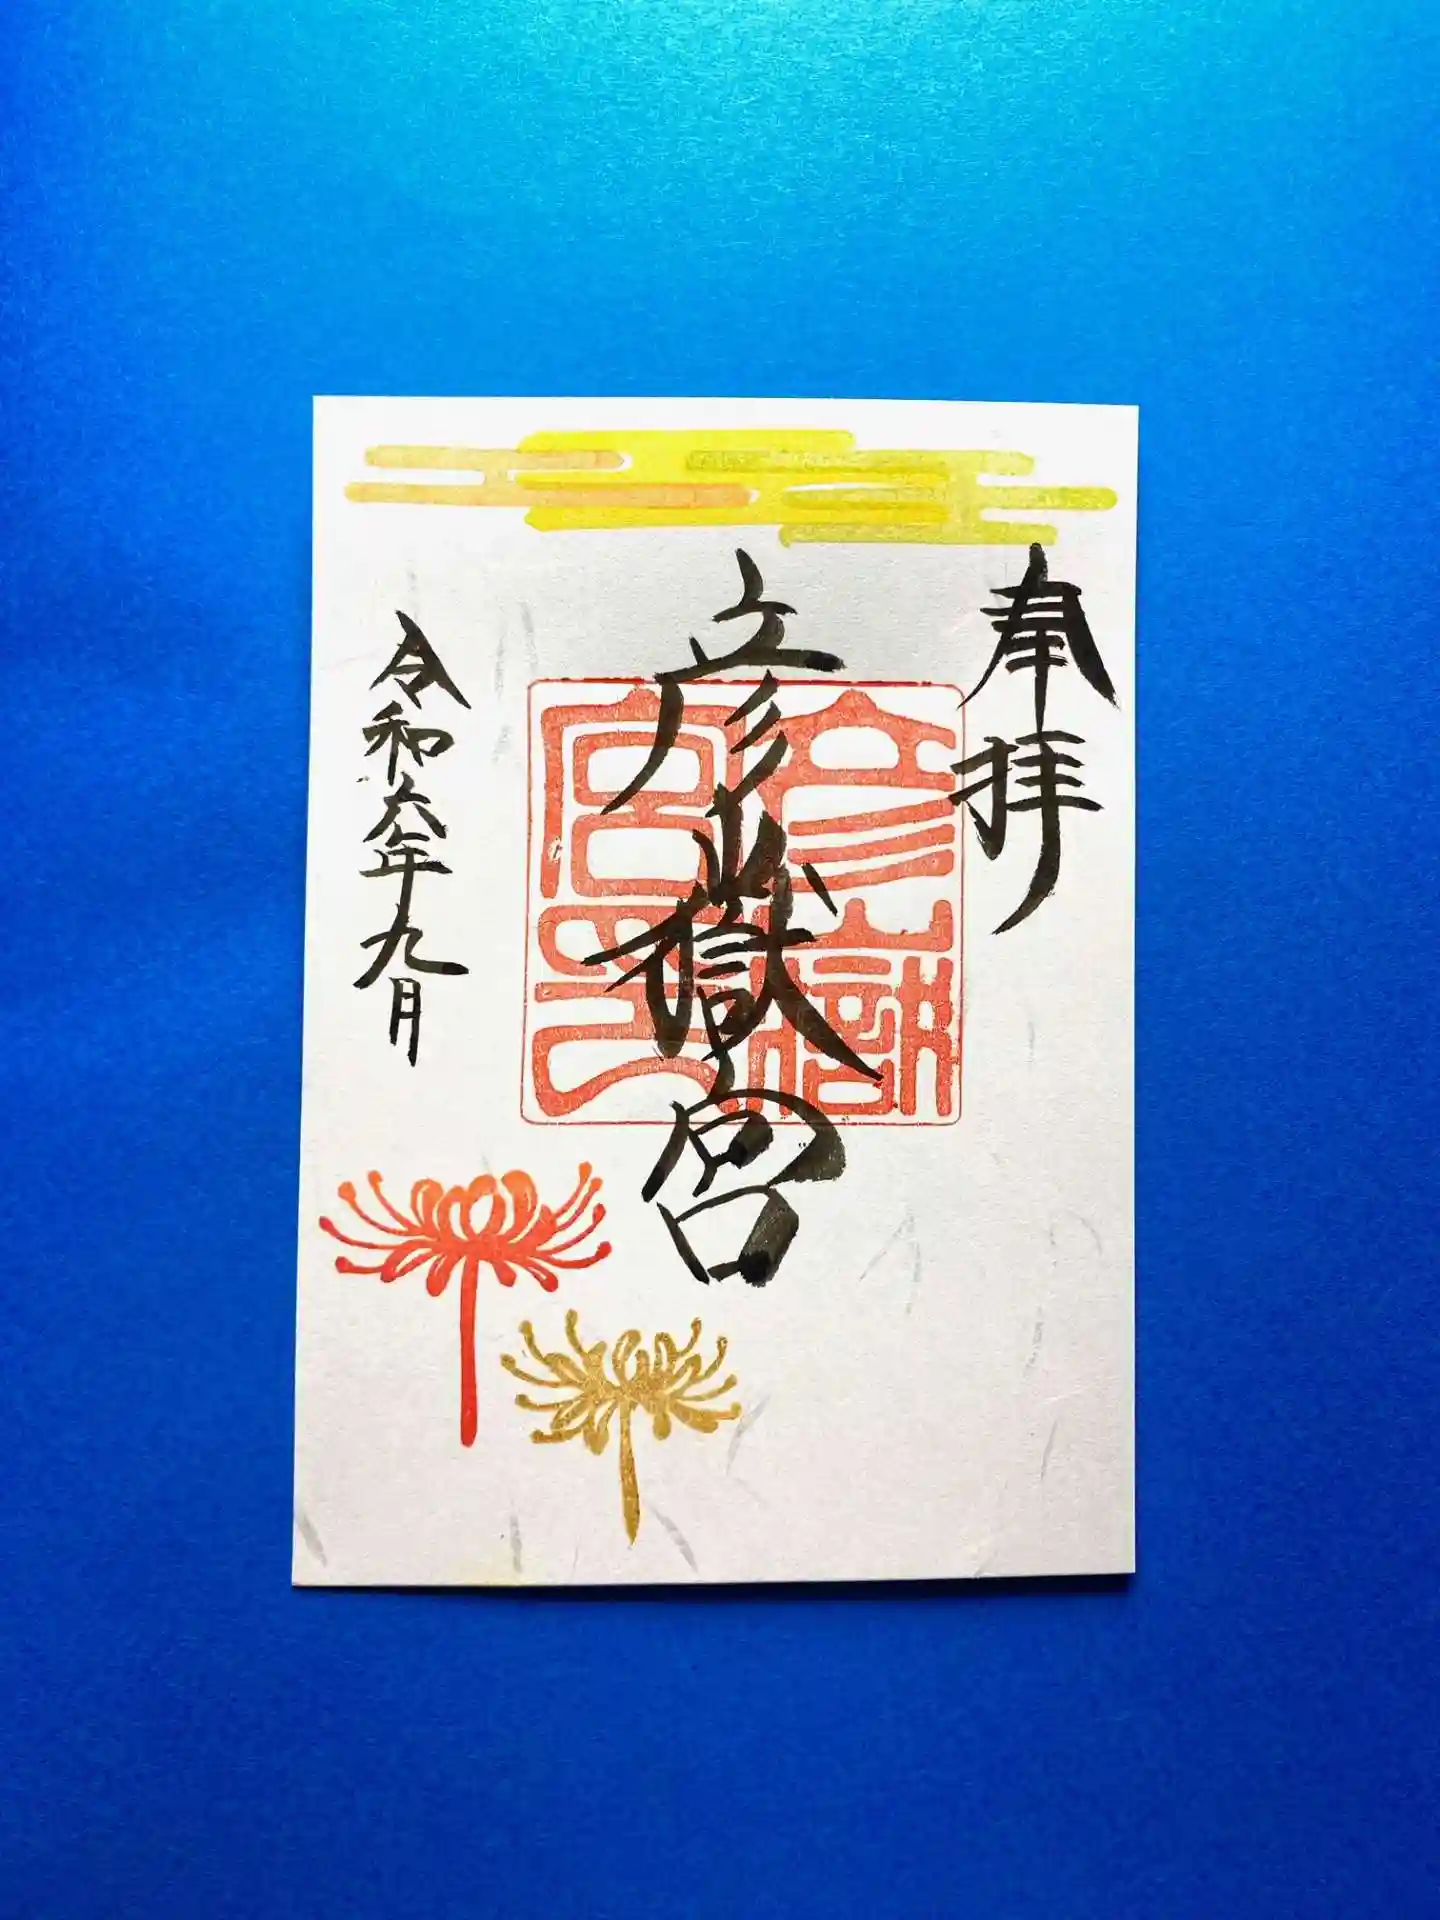 奉拝
彦嶽宮
彦嶽宮印
令和六年九月